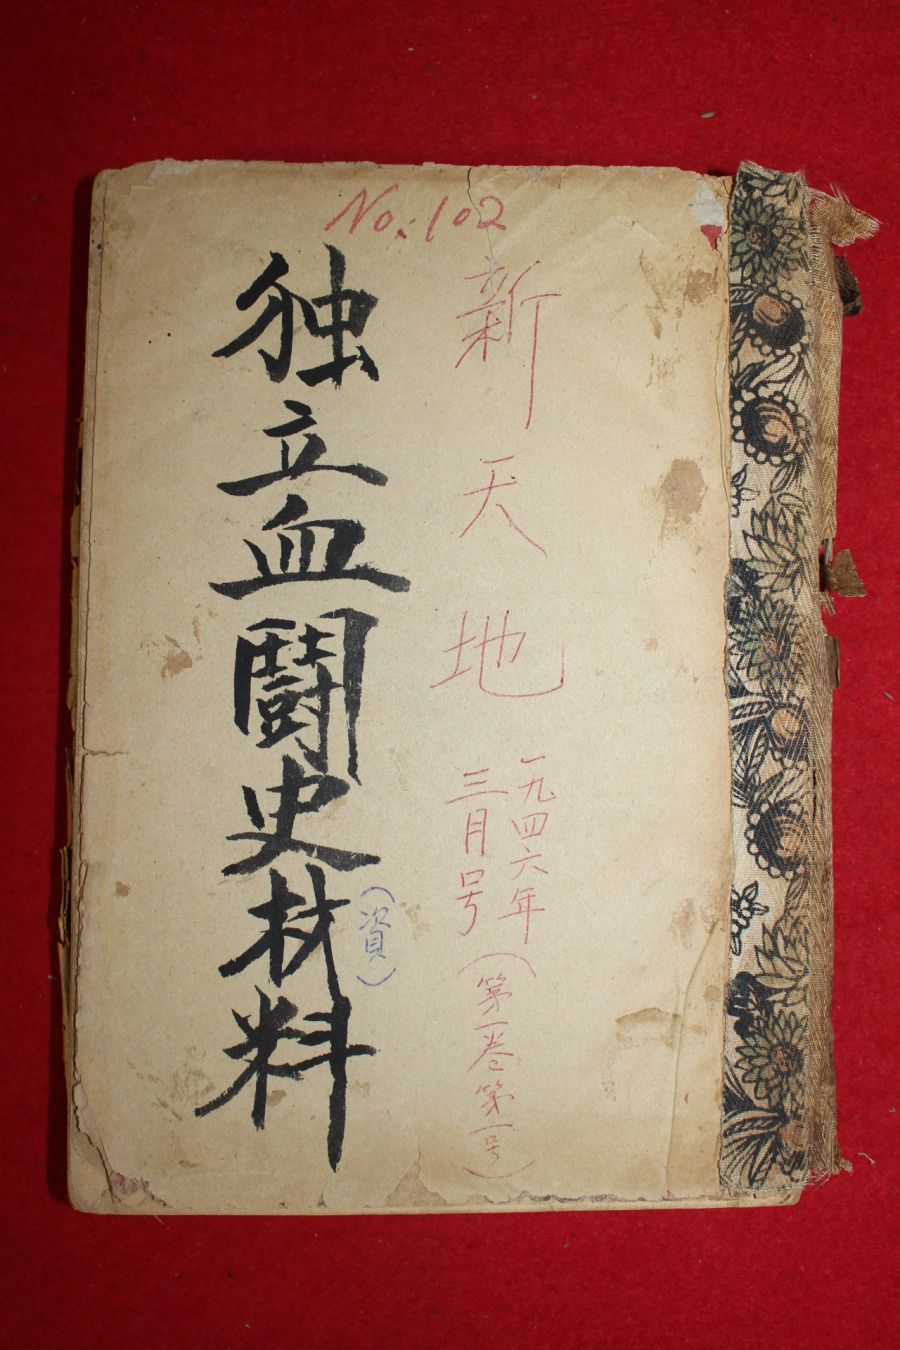 No. 102
新天地
一九四六年
三月号
(第一巻第一号)
独立血鬪史材料
(資)